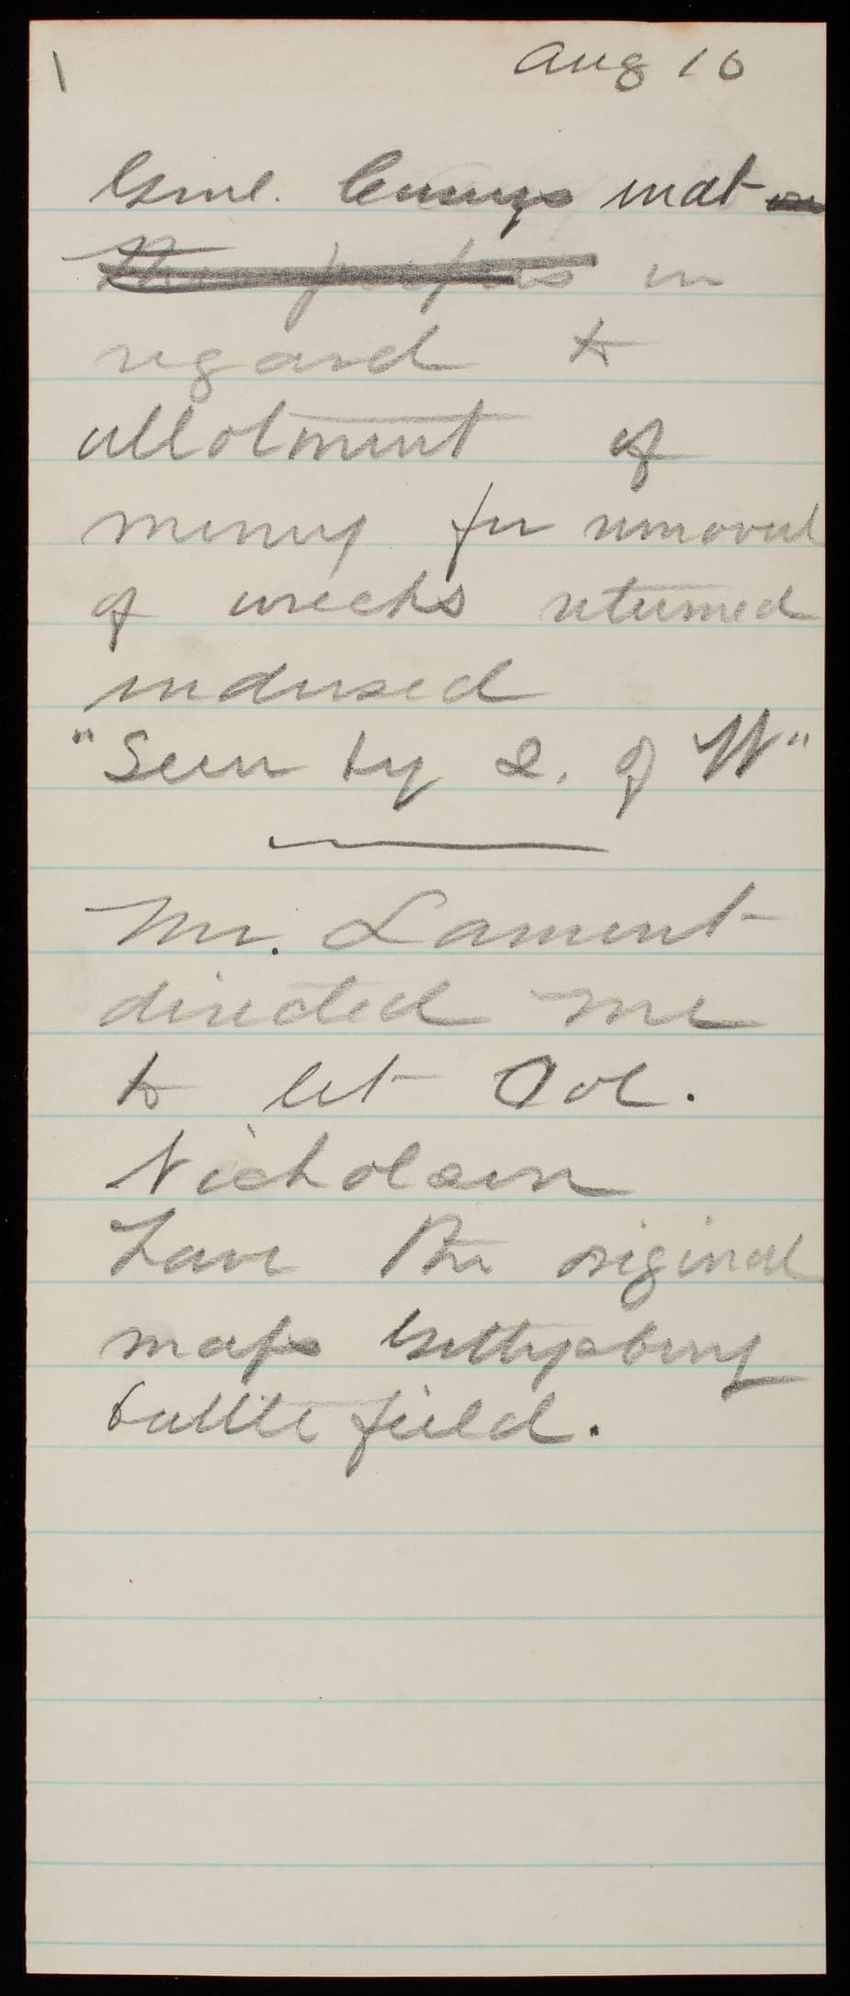 1 Aug 16
Genl. Caseys mat
in
regard to
allotment of
money for removal
of wrecks returned
indorsed
"Seen by S. of W"
Mr. Lamont
directed me
to let Col.
Nicholson
have the original
maps Gettysburg
battle field.